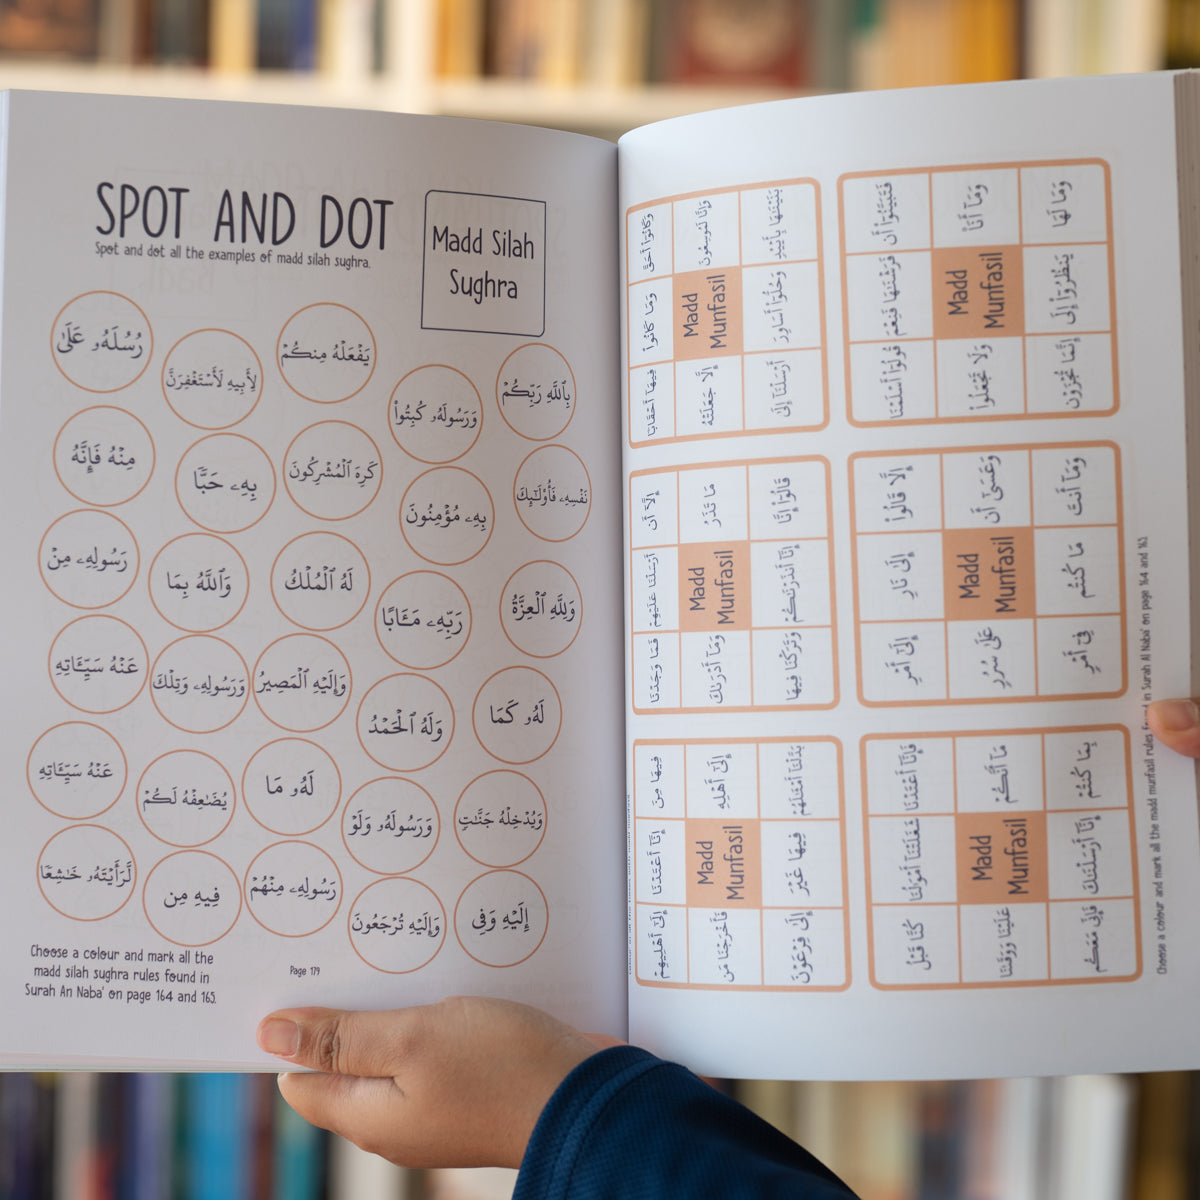 SPOT AND DOT
Spot and dot all the examples of madd silah sughra.
Madd Silah
Sughra
رُسُلَهُۥ عَلَىٰ
لِأَبِيهِ لَأَسْتَغْفِرَنَّ
يَفْعَلْهُ مِنكُمْ
وَرَسُولَهُۥ كُبِتُوا۟
بِٱللَّهِ رَبِّكُمْ
مِنْهُ فَإِنَّهُ
بِهِۦ حَبًّا
كَرِهَ ٱلْمُشْرِكُونَ
بِهِۦ مُؤْمِنُونَ
نَفْسِهِۦ فَأُو۟لَـٰٓئِكَ
رَسُولِهِۦ مِنْ
وَٱللَّهُ بِمَا
لَهُ ٱلْمُلْكُ
رَبِّهِۦ مَـَٔابًا
وَلِلَّهِ ٱلْعِزَّةُ
عَنْهُ سَيِّـَٔاتِهِ
وَرَسُولِهِۦ وَتِلْكَ
وَإِلَيْهِ ٱلْمَصِيرُ
وَلَهُ ٱلْحَمْدُ
لَهُۥ كَمَا
عَنْهُ سَيِّـَٔاتِهِ
يُضَـٰعِفْهُ لَكُمْ
لَهُۥ مَا
وَرَسُولَهُۥ وَلَوْ
وَيُدْخِلْهُ جَنَّـٰتٍ
لَّرَأَيْتَهُۥ خَـٰشِعًا
فِيهِ مِن
رَسُولِهِۦ مِنْهُمْ
وَإِلَيْهِ تُرْجَعُونَ
إِلَيْهِ وَفِى
Choose a colour and mark all the
madd silah sughra rules found in
Surah An Naba' on page 164 and 165.
Page 179
وَكَانُوٓا۟ أَحَقَّ
وَإِنَّا لَمُوسِعُونَ
بَنَيْنَـٰهَا بِأَيْي۟دٍ
وَمَا كَانُوا۟
Madd
Munfasil
وَحُلُّوٓا۟ أَسَاوِرَ
فِيهَآ أَحْقَابًا
إِلَّا جَعَلَتْهُ
أَرْسَلْنَآ إِلَىٰ
فَتَبَيَّنُوٓا۟ أَن
وَمَآ أَنَا۠
وَمَا لَهَا
فَرَشْنَـٰهَا فَنِعْمَ
Madd
Munfasil
يَنظُرُوٓا۟ إِلَى
قُولُوٓا۟ أَسْلَمْنَا
وَلَا تَجْعَلُوا۟
إِنَّمَا تُجْزَوْنَ
إِلَّآ أَن
مَا تَذَرُ
قَالُوٓا۟ إِنَّا
أَرْسَلْنَا عَلَيْهِمْ
Madd
Munfasil
إِنَّآ أَنذَرْنَـٰكُمْ
فَمَا وَجَدْنَا
وَمَآ أَدْرَىٰكَ
وَتَرَكْنَا فِيهَآ
إِلَّا قَالُوا۟
وَعَسَىٰٓ أَن
وَمَآ أَنتَ
إِلَىٰ نَارِ
Madd
Munfasil
مَا كُنتُمْ
إِلَىٰٓ أَمْرِ
عَلَىٰ سُرُرٍ
فِىٓ أَمْرٍ
فِيهَا مِنَ
إِلَىٰٓ أَهْلِهِ
بَدَّلْنَآ أَمْثَـٰلَهُمْ
إِنَّآ أَعْتَدْنَا
Madd
Munfasil
فِيهَا غَيْرَ
إِلَىٰٓ أَهْلِيهِمْ
فَأَخْرَجْنَا مَن
إِلَىٰ فِرْعَوْنَ
فَإِنَّآ أَعْتَدْنَا
مَآ أَنَّكُمْ
بِمَا كُنتُمْ
شَغَلَتْنَآ أَمْوَٰلُنَا
Madd
Munfasil
إِنَّآ أَرْسَلْنَـٰكَ
كُنَّا قَبْلُ
عَلَيْنَا وَوَقَىٰنَا
فَإِنِّى مَعَكُم
Choose a colour and mark all the madd munfasil rules found in Surah Al Naba' on page 164 and 165